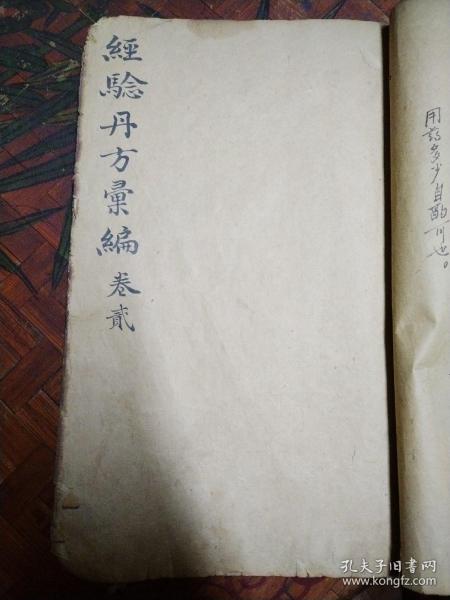 經驗丹方彙編 卷貳
用药多少自酌可也。
孔夫子旧书网
www.kongfz.com